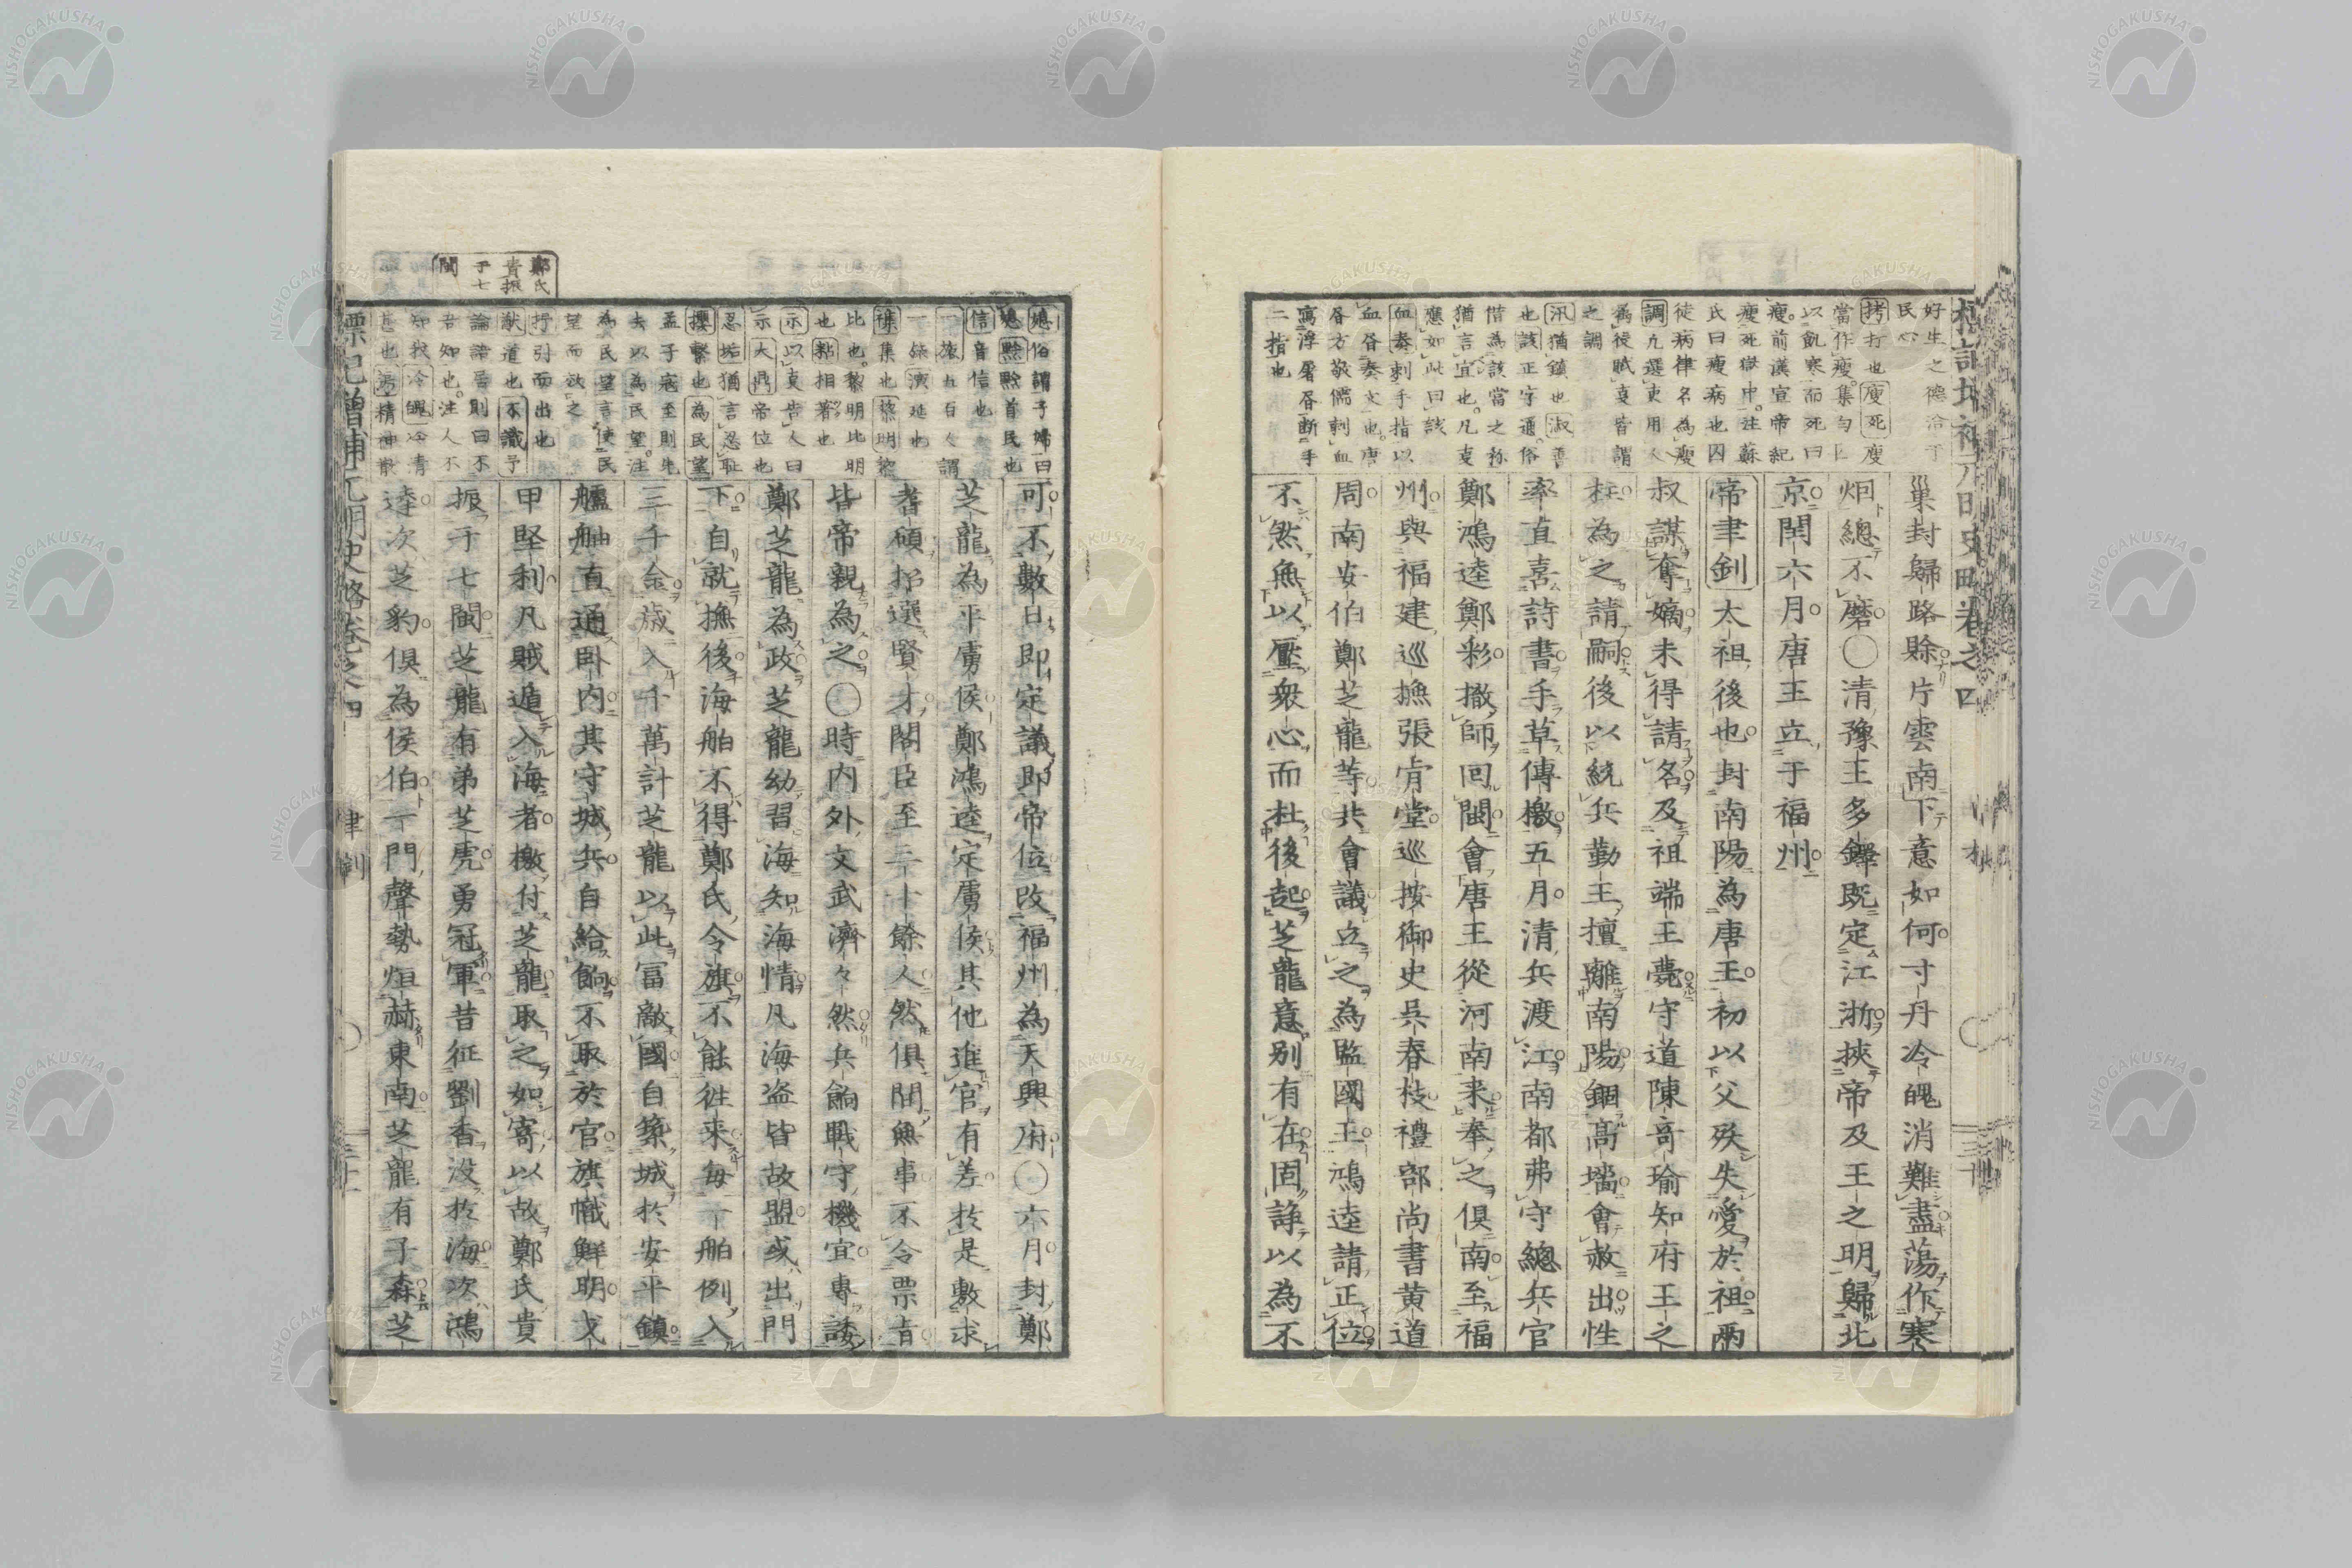 好生之德洽于
民心
拷打也瘦死瘦
當作瘦集勻曰
以飢寒而死曰
瘦前漢宣帝紀
瘦死獄中注蘇
氏曰瘦病也囚
徒病律名為瘦
調九選吏用人
之調
汛猶鎮也淑善
也該正字通俗
借為該當之称
猶言宜也凡吏
應如此曰該
血奏刺手指以
血書奏文也唐
書方敬儒刺血
寫浮屠書斷手
二指也
巢封歸路賒片雲南下意如何寸丹冷魄消難盡蕩作寒
烟總不磨〇清豫王多鐸既定江浙挾帝及王之明歸北
京閏六月唐王立于福州
帝聿釗太祖後也封南陽為唐王初以父歿失愛於祖兩
叔謀奪嫡未得請名及祖端王薨守道陳奇瑜知府王之
柱為之請嗣後以統兵勤王擅離南陽錮高墻會赦出性
率直喜詩書手草傳檄五月清兵渡江南都弗守總兵官
鄭鴻逵鄭彩撤師回閩會唐王從河南来奉之俱南至福
州與福建巡撫張肯堂巡按御史吳春枝禮部尚書黄道
周南安伯鄭芝龍等共會議立之為監國王鴻逵請正位
不然無以壓衆心而杜後起芝龍意別有在固諍以為不
鄭氏
貴振
于七
閩
媳伯謂子婦曰
媳黔黔首民也
信音信也
一旅五百人謂
一旅演延也
集集也黎明黎
比也黎明比明
也黏相著也
示以吏告人曰
示大鼎帝位也
忍垢猶言忍耻
攖繫也為民望
孟子寇至則先
去以為民望注
為民望言使民
望而效之
抒引而出也
猷道也不識子
論語居則曰不
吾知也注人不
知我冷魄冷清
甚也
可不數日即定議即帝位改福州為天興府〇六月封鄭
芝龍為平虜侯鄭鴻逵定虜侯其他進官有差於是敷求
耆碩招選賢才閣臣至三十餘人然俱閒無事不令票旨
皆帝親為之〇時内外文武濟々然兵餉戰守機宜專諉
鄭芝龍為政芝龍幼習海知海情凡海盗皆故盟或出門
下自就撫後海舶不得鄭氏令旗不能往来毎一舶例入
三千金歳入千萬計芝龍以此冨敵國自築城於安平鎮
艫舳直通臥内其守城兵自給餉不取於官旗幟鮮明戈
甲堅利凡賊遁入海者檄付芝龍取之如寄以故鄭氏貴
振于七閩芝龍有弟芝虎勇冠軍昔征劉香没於海次鴻
逵次芝豹俱為侯伯一門聲勢烜赫東南芝龍有子森芝
標記增補元明史略卷之四
聿釗